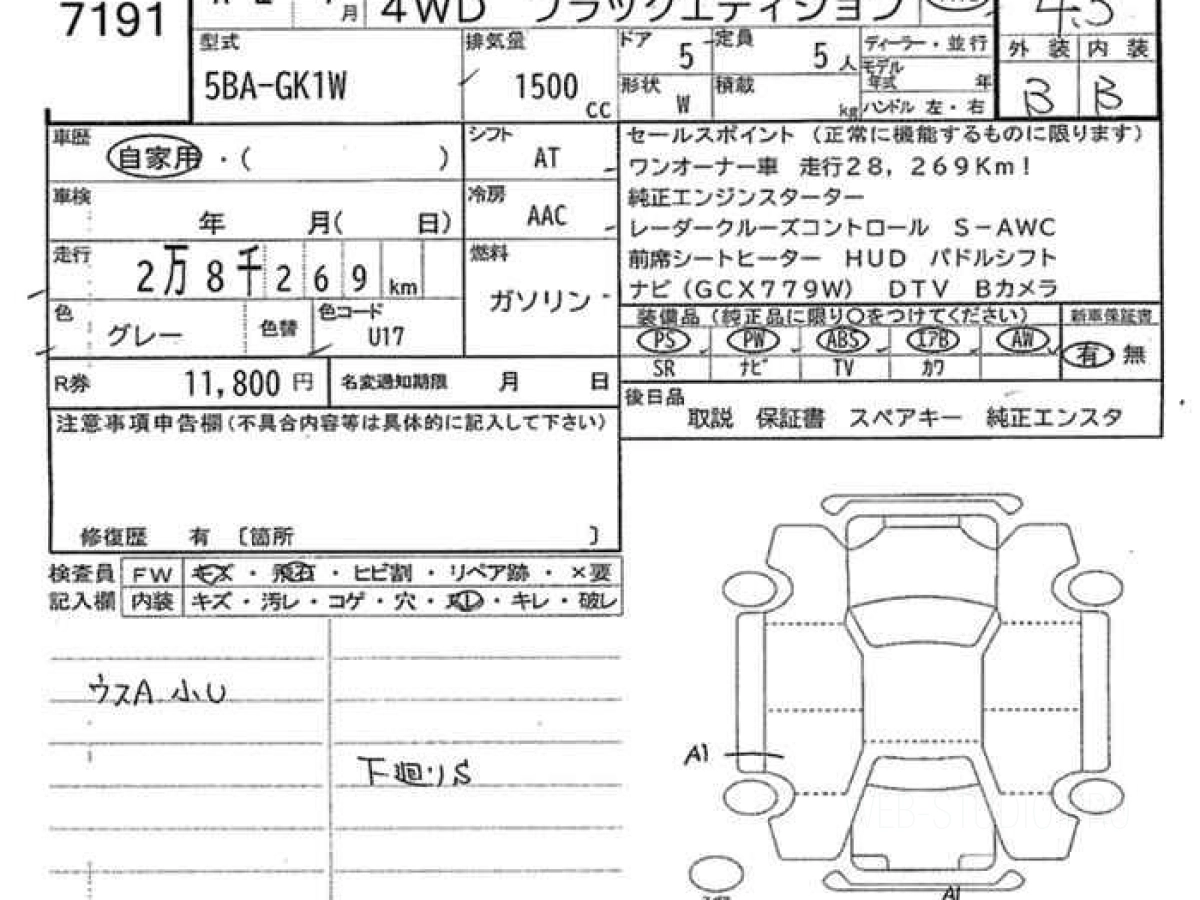 7191
4WD ブラックエディション
4.5
型式
5BA-GK1W
排気量
1500 cc
ドア 5
定員 5 人
ディーラー・並行
モデル年式 年
形状 W
積載 kg
ハンドル 左・右
外装 内装
B B
車歴
自家用・( )
シフト
AT
車検
年 月( 日)
冷房
AAC
走行
2万8千269km
燃料
ガソリン
色
グレー
色替
色コード
U17
R券 11,800円
名変通知期限 月 日
セールスポイント (正常に機能するものに限ります)
ワンオーナー車 走行28,269Km!
純正エンジンスターター
レーダークルーズコントロール S-AWC
前席シートヒーター HUD パドルシフト
ナビ(GCX779W) DTV Bカメラ
装備品(純正品に限り○をつけてください)
新車保証書
PS PW ABS エアB AW
有 無
SR ナビ TV カワ
後日品
取説 保証書 スペアキー 純正エンスタ
注意事項申告欄(不具合内容等は具体的に記入して下さい)
修復歴 有 〔箇所 〕
検査員 FW キズ・飛石・ヒビ割・リペア跡・×要
記入欄 内装 キズ・汚レ・コゲ・穴・凹・キレ・破レ
ウスA 小U
下廻りS
A1
A1